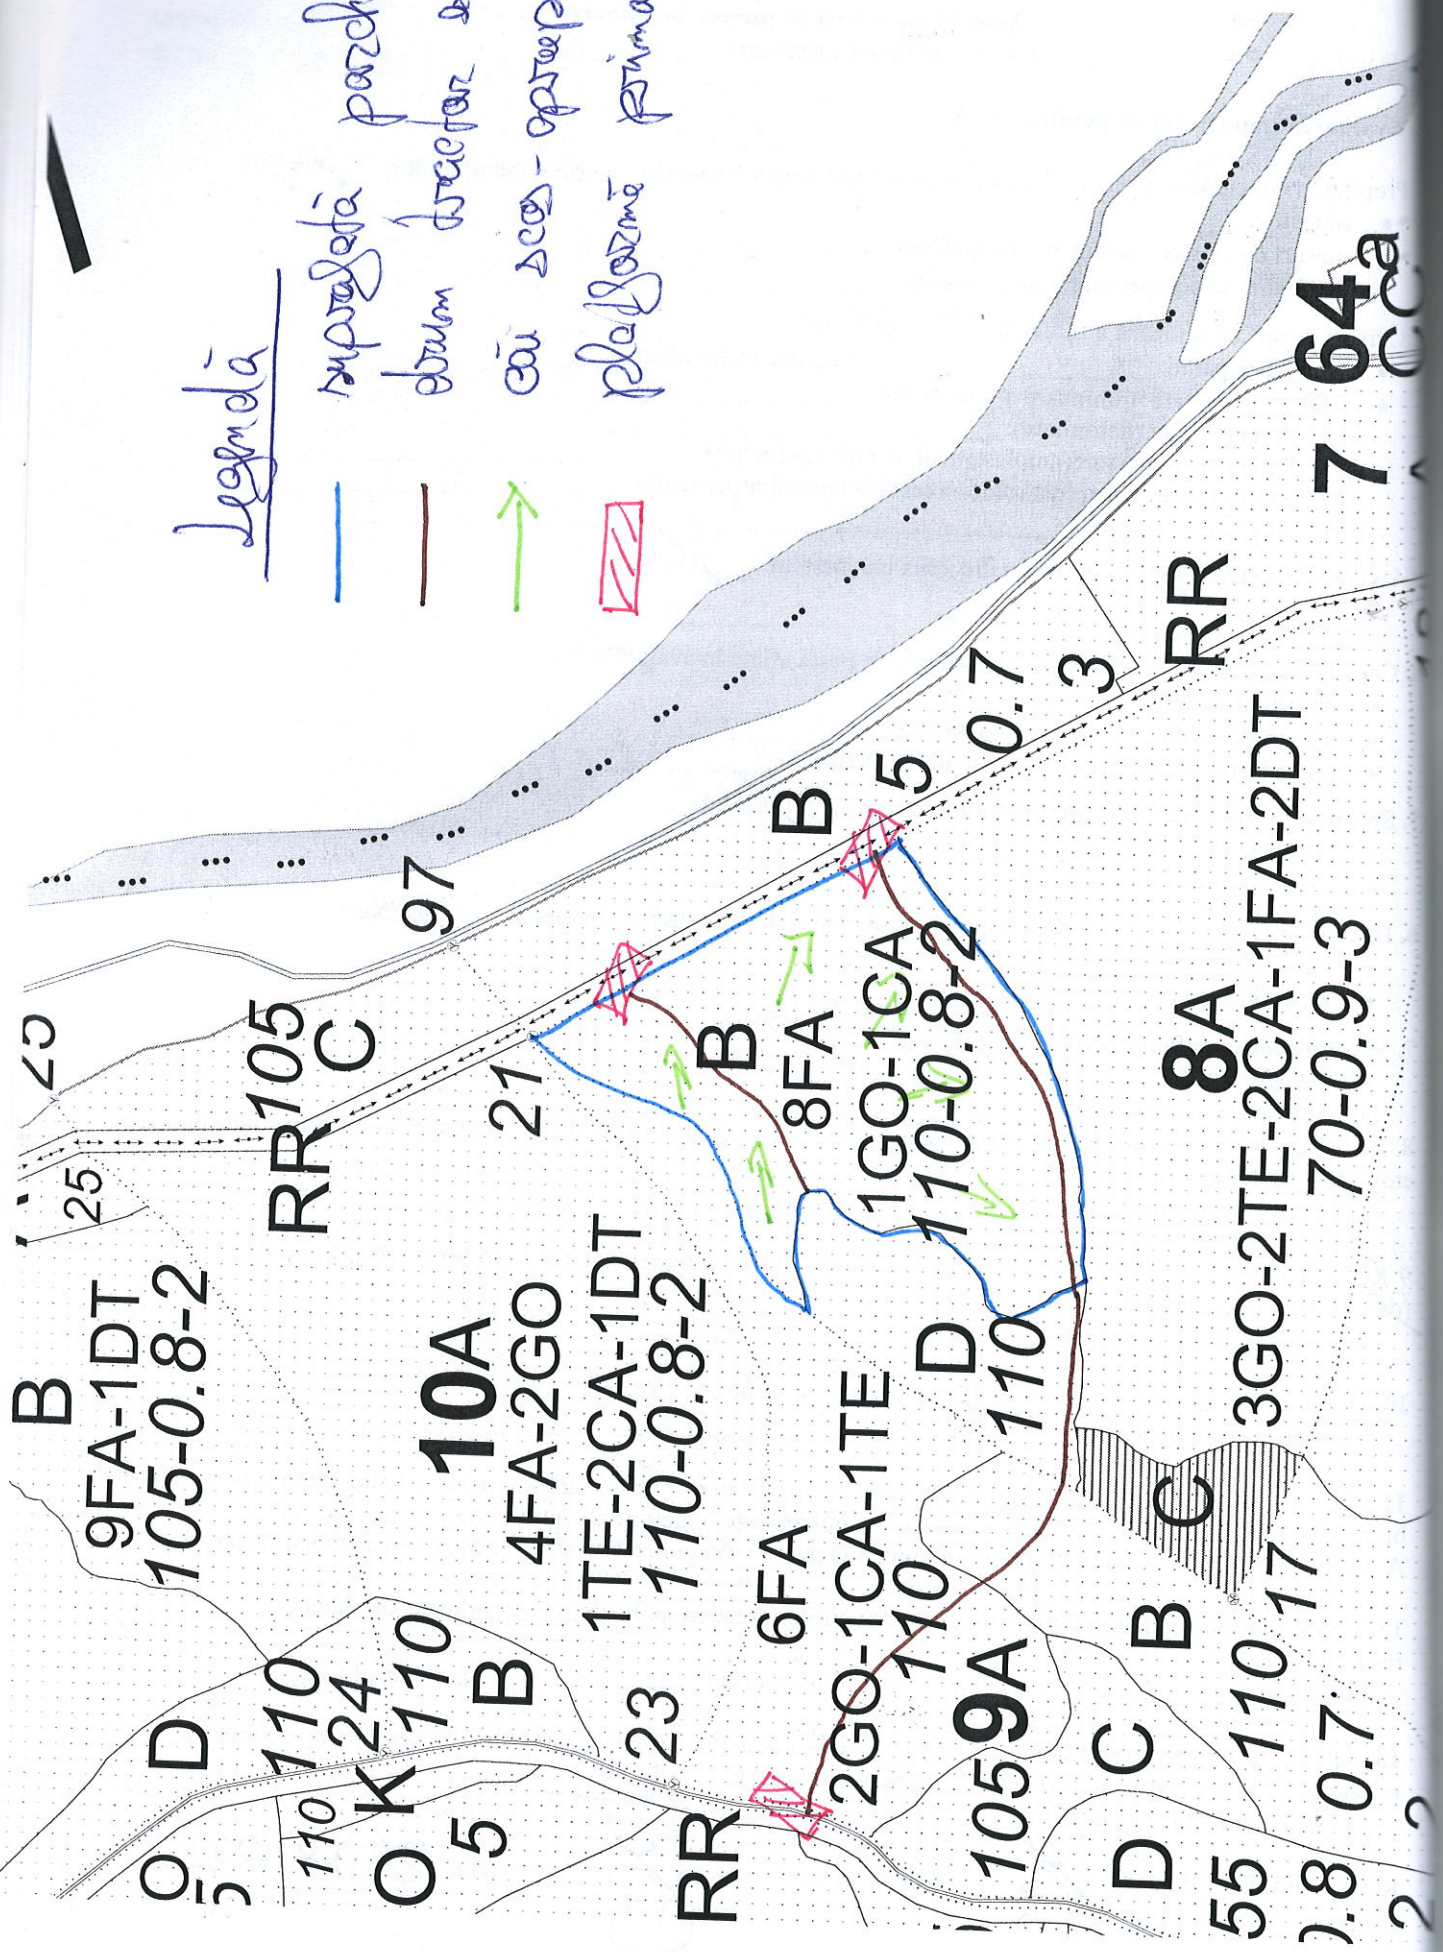 Legendă
suprafată
drum tractor
căi scos - 
platformă
25
25
B
9FA-1DT
105-0.8-2
RR
105
C
97
21
10A
4FA-2GO
1TE-2CA-1DT
110-0.8-2
B
8FA
1GO-1CA
110-0.8-2
B
5
0.7
3
RR
7
64
a
8A
3GO-2TE-2CA-1FA-2DT
70-0.9-3
D
110
6FA
2GO-1CA-1TE
110
9A
105
C
B
110
17
0.7
C
D
55
0.8
2
2
D
110
24
K
110
B
23
O
5
110
O
5
RR